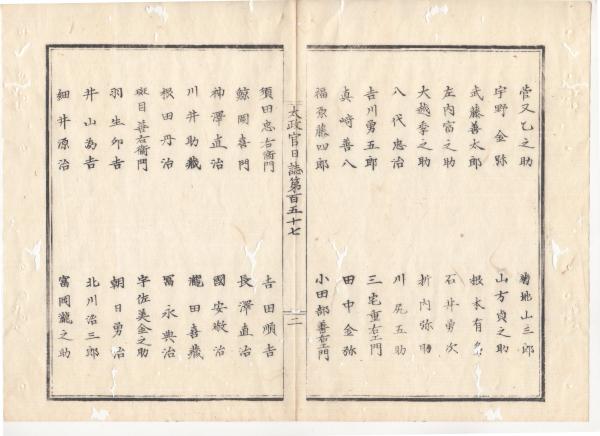 菅又乙之助
宇野金弥
武藤善太郎
左内富之助
大越季之助
八代忠治
吉川勇五郎
真崎善八
福原藤四郎
菊地山三郎
山方貞之助
根本有
石井勇次
折内弥助
川尻五助
三宅重右エ門
田中金弥
小田部善右エ門
太政官日誌第百五十七
二
須田忠右衛門
鯨岡喜門
神澤直治
川井助蔵
根田丹治
斑目善右衛門
羽生卯吉
井山為吉
細井源治
吉田順吉
長澤直治
國安
瀧田喜蔵
冨永典治
宇佐美金之助
朝日勇治
北川浩三郎
富岡瀧之助